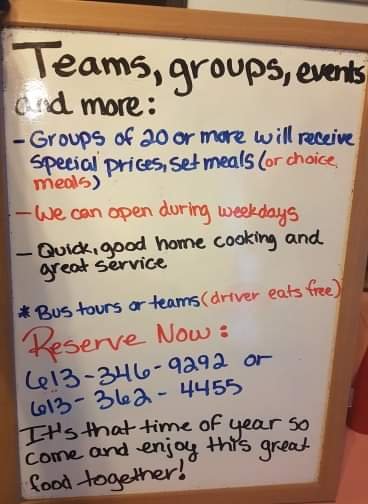 Teams, groups, events
and more:
- Groups of 20 or more will receive
special prices, set meals (or choice
meals)
- We can open during weekdays
- Quick, good home cooking and
great service
* Bus tours or teams (driver eats free)
Reserve Now:
613-346-9292 or
613-362-4455
It's that time of year so
come and enjoy this great
food together!